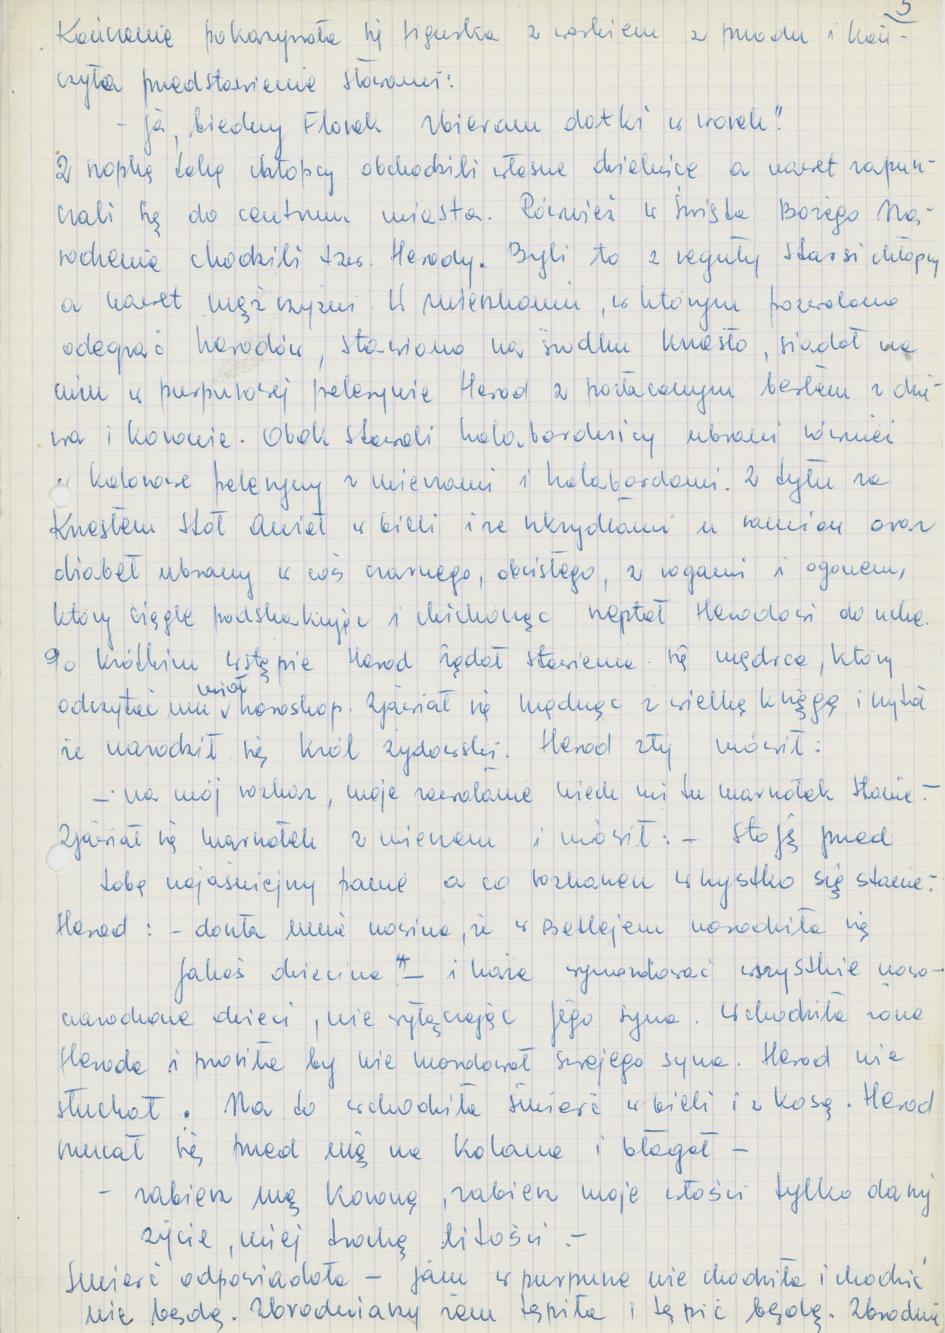 5
Kończenie pokazywała się figurka z workiem z przodu i koń-
czyła przedstawienie słowami:
- ja, biedny Florek zbieram datki w worek".
Z szopką taką chłopcy obchodzili własne dzielnice a nawet zapusz-
czali się do centrum miasta. Również w Święta Bożego Na-
rodzenia chodzili tzw. Herody. Byli to z reguły starsi chłopcy
a nawet mężczyźni. W mieszkaniu, w którym pozwolono
odegrać herodów, stawiano na środku krzesło, siadał na
nim w purpurowej pelerynie Herod z pozłacanym berłem z drze-
wa i koronie. Obok stawali halabardnicy ubrani również
w kolorowe peleryny z mieczami i halabardami. Z tyłu za
krzesłem stał anioł w bieli i ze skrzydłami u ramion oraz
diabeł ubrany w coś czarnego, obcisłego, z rogami i ogonem,
który ciągle podskakując i chichocząc szeptał Herodowi do ucha.
Po krótkim wstępie Herod żądał stawienia się mędrca, który
odczytać mu miał horoskop. Zjawiał się mędrzec z wielką księgą i czytał
że narodził się król żydowski. Herod zły mówił:
- na mój rozkaz, moje zawołanie niech mi tu marszałek stanie.-
Zjawiał się marszałek z mieczem i mówił: - stoję przed
tobą najaśniejszy panie a co rozkażesz wszystko się stanie.-
Herod: - doszła mnie nowina, że w Betlejem narodziła się
jakaś dziecina" - i każe wymordować wszystkie nowo-
narodzone dzieci, nie wyłączając jego syna. Wchodziła żona
Heroda i prosiła by nie mordował swojego syna. Herod nie
słuchał. Na to wchodziła śmierć w bieli i z kosą. Herod
rzucał się przed nią na kolana i błagał -
- zabierz mą koronę, zabierz moje włości tylko daruj
życie, miej trochę litości.-
Śmierć odpowiadała - jam w purpurze nie chodziła i chodzić
nie będę. Zbrodniarzy żem tępiła i tępić będę. Zbrodnie